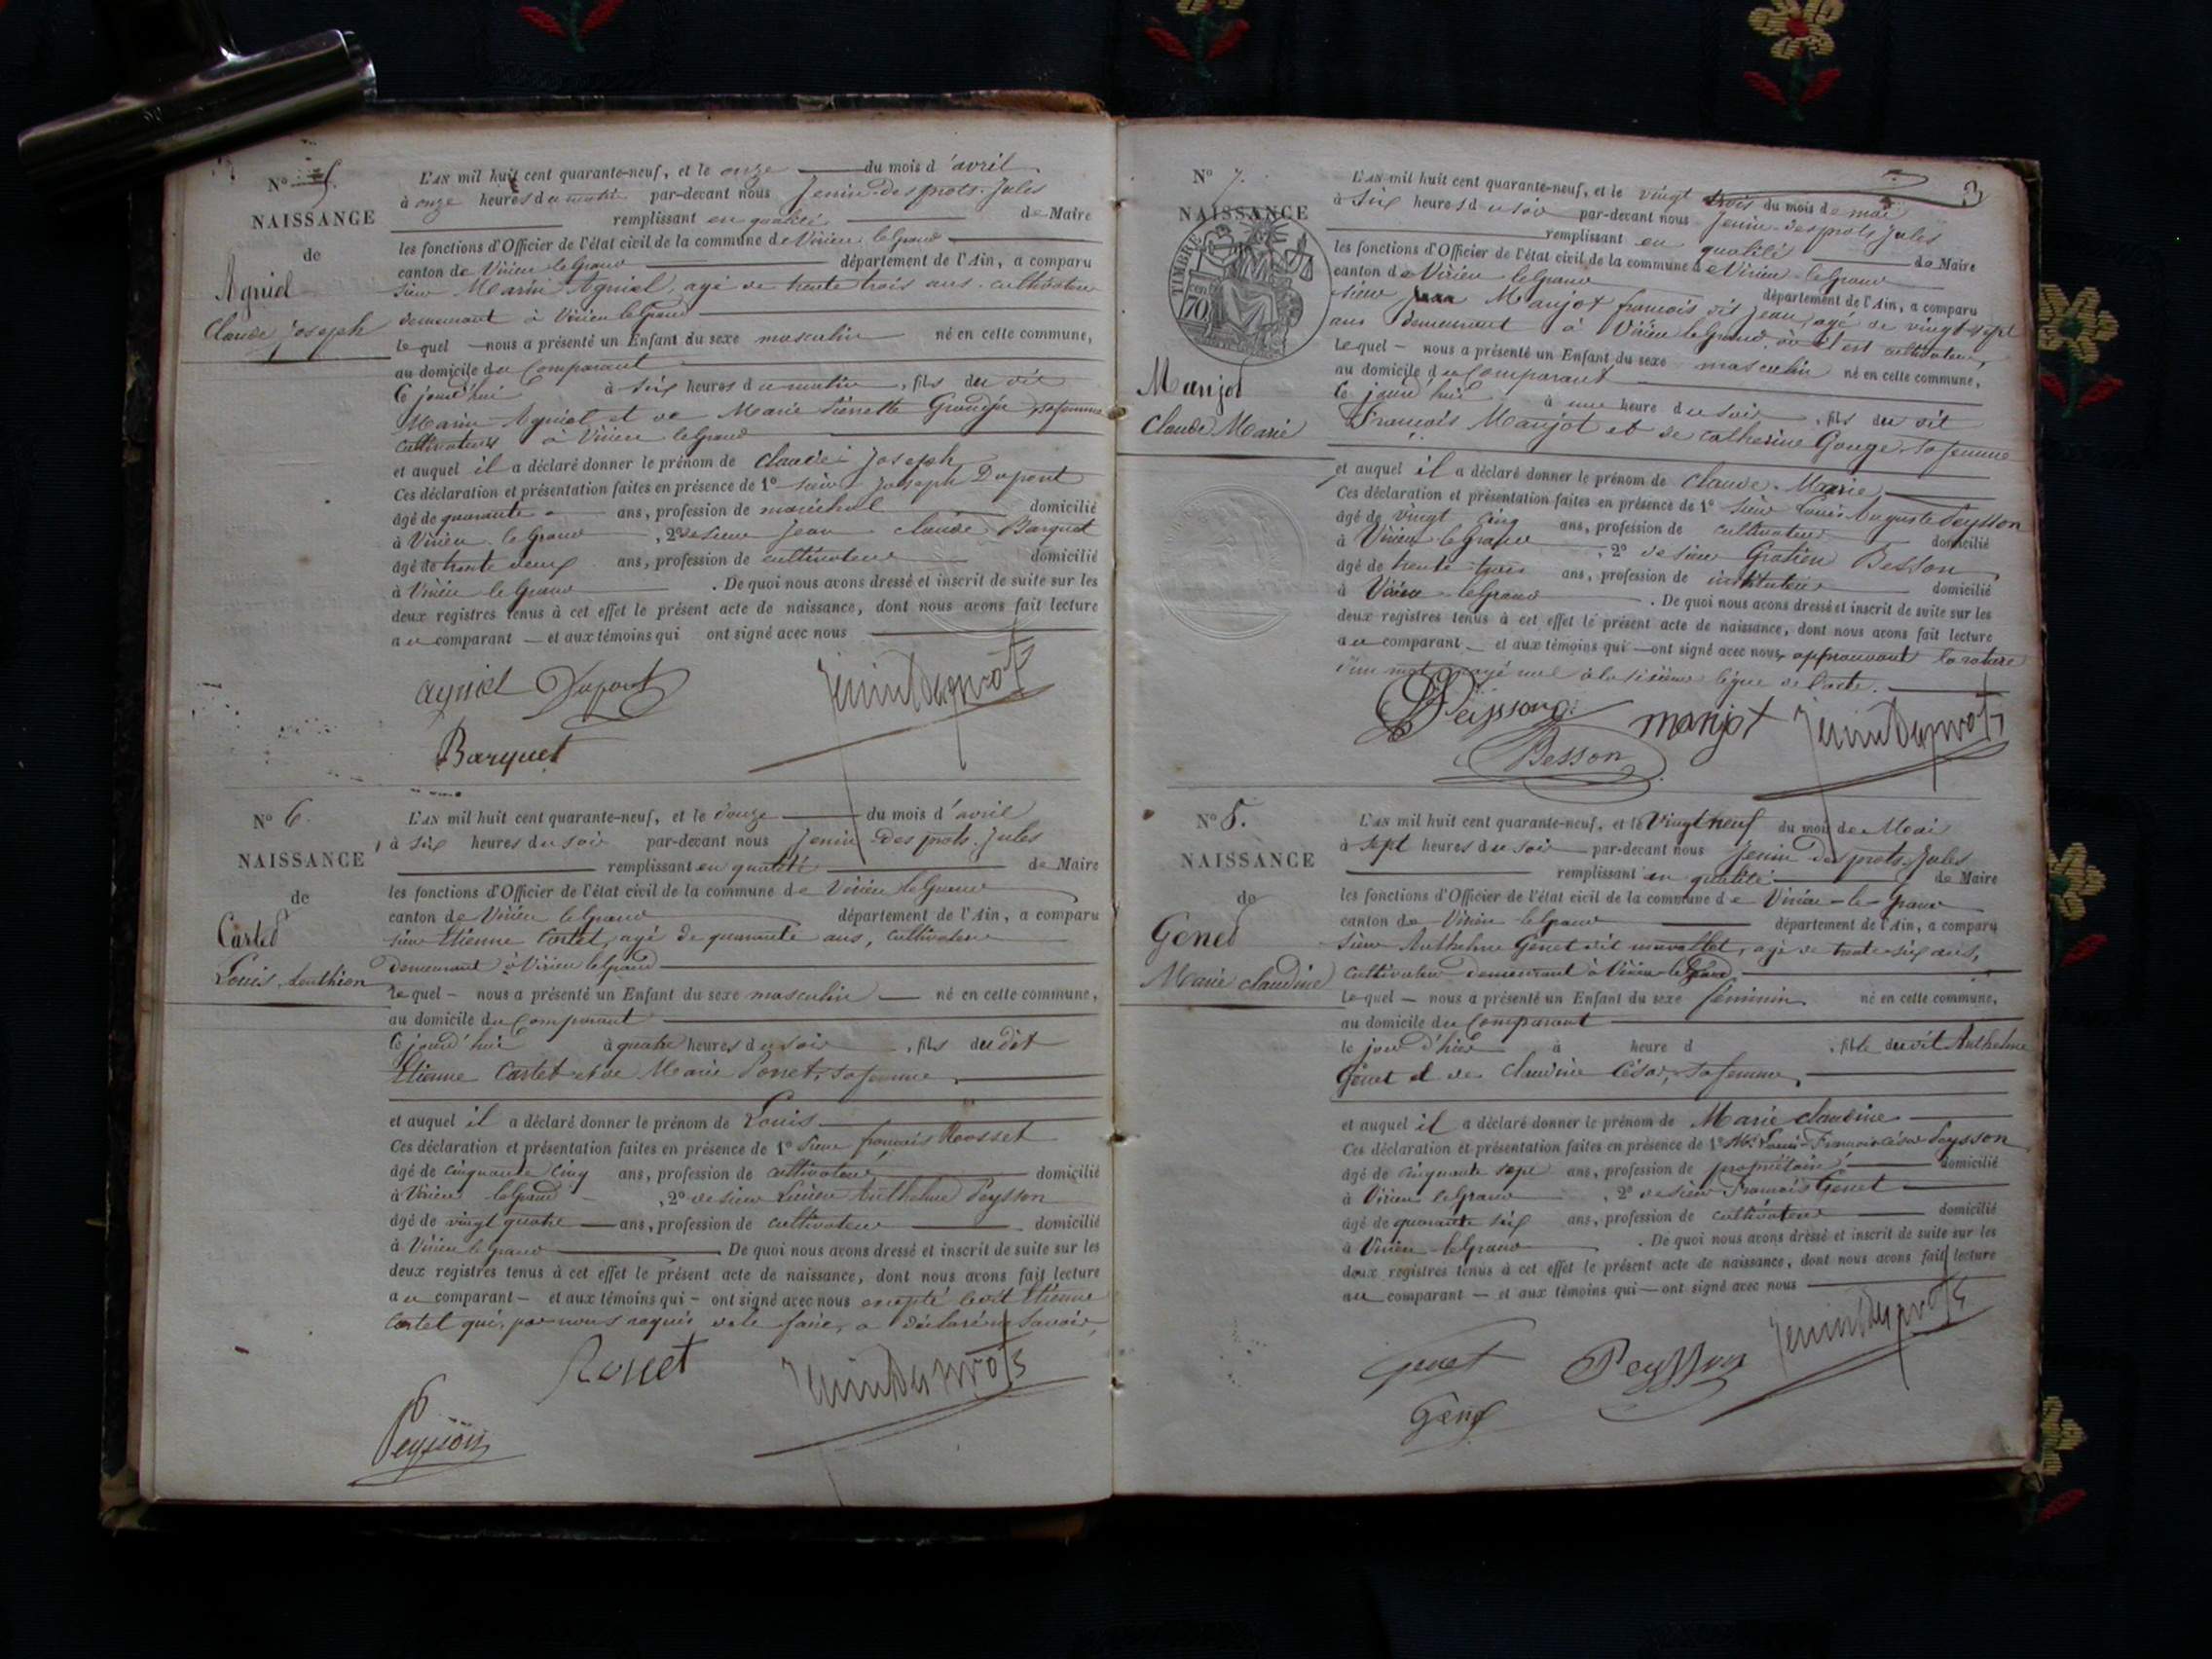 N° 5.
NAISSANCE
de
Agniel
Claude Joseph
L'AN mil huit cent quarante-neuf, et le onze du mois d'avril
à onze heures du matin par-devant nous Jenin-des prots-Jules
remplissant en qualité de Maire
les fonctions d'Officier de l'état civil de la commune de Virieu le Grand
canton de Virieu le Grand département de l'Ain, a comparu
sieur Marin Agniel, agé de trente trois ans, cultivateur
demeurant à Virieu le Grand
lequel nous a présenté un Enfant du sexe masculin né en cette commune,
au domicile du Comparant
Ce jourd'hui à six heures du matin, fils du dit
Marin Agniel et de Marie Pierrette sa femme
cultivateurs à Virieu le Grand
et auquel il a déclaré donner le prénom de Claude Joseph
Ces déclaration et présentation faites en présence de 1° sieur Joseph Dupont
âgé de quarante ans, profession de maréchal domicilié
à Virieu le Grand, 2° de sieur Jean Claude Barquet
âgé de trente deux ans, profession de cultivateur domicilié
à Virieu le Grand. De quoi nous avons dressé et inscrit de suite sur les
deux registres tenus à cet effet le présent acte de naissance, dont nous avons fait lecture
au comparant et aux témoins qui ont signé avec nous
agniel Dupont Jenindesprots
Barquet
N° 6.
NAISSANCE
de
Cartet
Louis
L'AN mil huit cent quarante-neuf, et le douze du mois d'avril
à six heures du soir par-devant nous Jenin-des prots-Jules
remplissant en qualité de Maire
les fonctions d'Officier de l'état civil de la commune de Virieu le Grand
canton de Virieu le Grand département de l'Ain, a comparu
sieur Etienne Cartet, agé de quarante ans, cultivateur
demeurant à Virieu le Grand
lequel nous a présenté un Enfant du sexe masculin né en cette commune,
au domicile du Comparant
Ce jourd'hui à quatre heures du soir, fils du dit
Etienne Cartet et de Marie sa femme,
et auquel il a déclaré donner le prénom de Louis
Ces déclaration et présentation faites en présence de 1° Sieur françois Rosset
âgé de cinquante cinq ans, profession de cultivateur domicilié
à Virieu le Grand, 2° de sieur Lucien Anthelme Peysson
âgé de vingt quatre ans, profession de cultivateur domicilié
à Virieu le Grand De quoi nous avons dressé et inscrit de suite sur les
deux registres tenus à cet effet le présent acte de naissance, dont nous avons fait lecture
au comparant et aux témoins qui ont signé avec nous excepté ledit Etienne
Cartet qui, par nous requis de le faire, a déclaré ne savoir,
Rosset Jenindesprots
Peysson
3
N° 7.
NAISSANCE
TIMBRE
70
Manjot
Claude Marie
L'AN mil huit cent quarante-neuf, et le vingt trois du mois de mai
à six heures du soir par-devant nous Jenin-desprots Jules
remplissant en qualité de Maire
les fonctions d'Officier de l'état civil de la commune de Virieu-le Grand
canton de Virieu le Grand département de l'Ain, a comparu
sieur Manjot francois dit jean, agé de vingt sept
ans demeurant à Virieu le Grand, où il est cultivateur,
lequel nous a présenté un Enfant du sexe masculin né en cette commune,
au domicile du Comparant
Ce jourd'hui à une heure du soir, fils du dit
François Manjot et de Catherine Gouge, sa femme
et auquel il a déclaré donner le prénom de Claude-Marie
Ces déclaration et présentation faites en présence de 1° Sieur Louis Auguste Peysson
âgé de vingt cinq ans, profession de cultivateur domicilié
à Virieu le Grand, 2° de sieur Gratien Besson
âgé de trente trois ans, profession de instituteur domicilié
à Virieu-le Grand. De quoi nous avons dressé et inscrit de suite sur les
deux registres tenus à cet effet le présent acte de naissance, dont nous avons fait lecture
au comparant et aux témoins qui ont signé avec nous, approuvant la rature
d'un mot rayé nul à la sixième ligne de l'acte.
Peissong manjot Jenindesprots
Besson
N° 8.
NAISSANCE
de
Genet
Marie Claudine
L'AN mil huit cent quarante-neuf, et le Vingt neuf du mois de Mai
à sept heures du soir par-devant nous Jenin des prots Jules
remplissant en qualité de Maire
les fonctions d'Officier de l'état civil de la commune de Virieu-le-Grand
canton de Virieu le Grand département de l'Ain, a comparu
Sieur Anthelme Genet dit, agé de trente-six ans,
cultivateur demeurant à Virieu-le Grand
lequel nous a présenté un Enfant du sexe féminin né en cette commune,
au domicile du Comparant
le jour d'hier à heure d, fille du dit Anthelme
Genet et de Claudine César, sa femme,
et auquel il a déclaré donner le prénom de Marie Claudine
Ces déclaration et présentation faites en présence de 1° Mr. Louis-François César Peysson
âgé de cinquante sept ans, profession de propriétaire domicilié
à Virieu le Grand, 2° de sieur François Genet
âgé de quarante six ans, profession de cultivateur domicilié
à Virieu-le Grand. De quoi nous avons dressé et inscrit de suite sur les
deux registres tenus à cet effet le présent acte de naissance, dont nous avons fait lecture
au comparant et aux témoins qui ont signé avec nous
Genet Peysson Jenindesprots
Genet